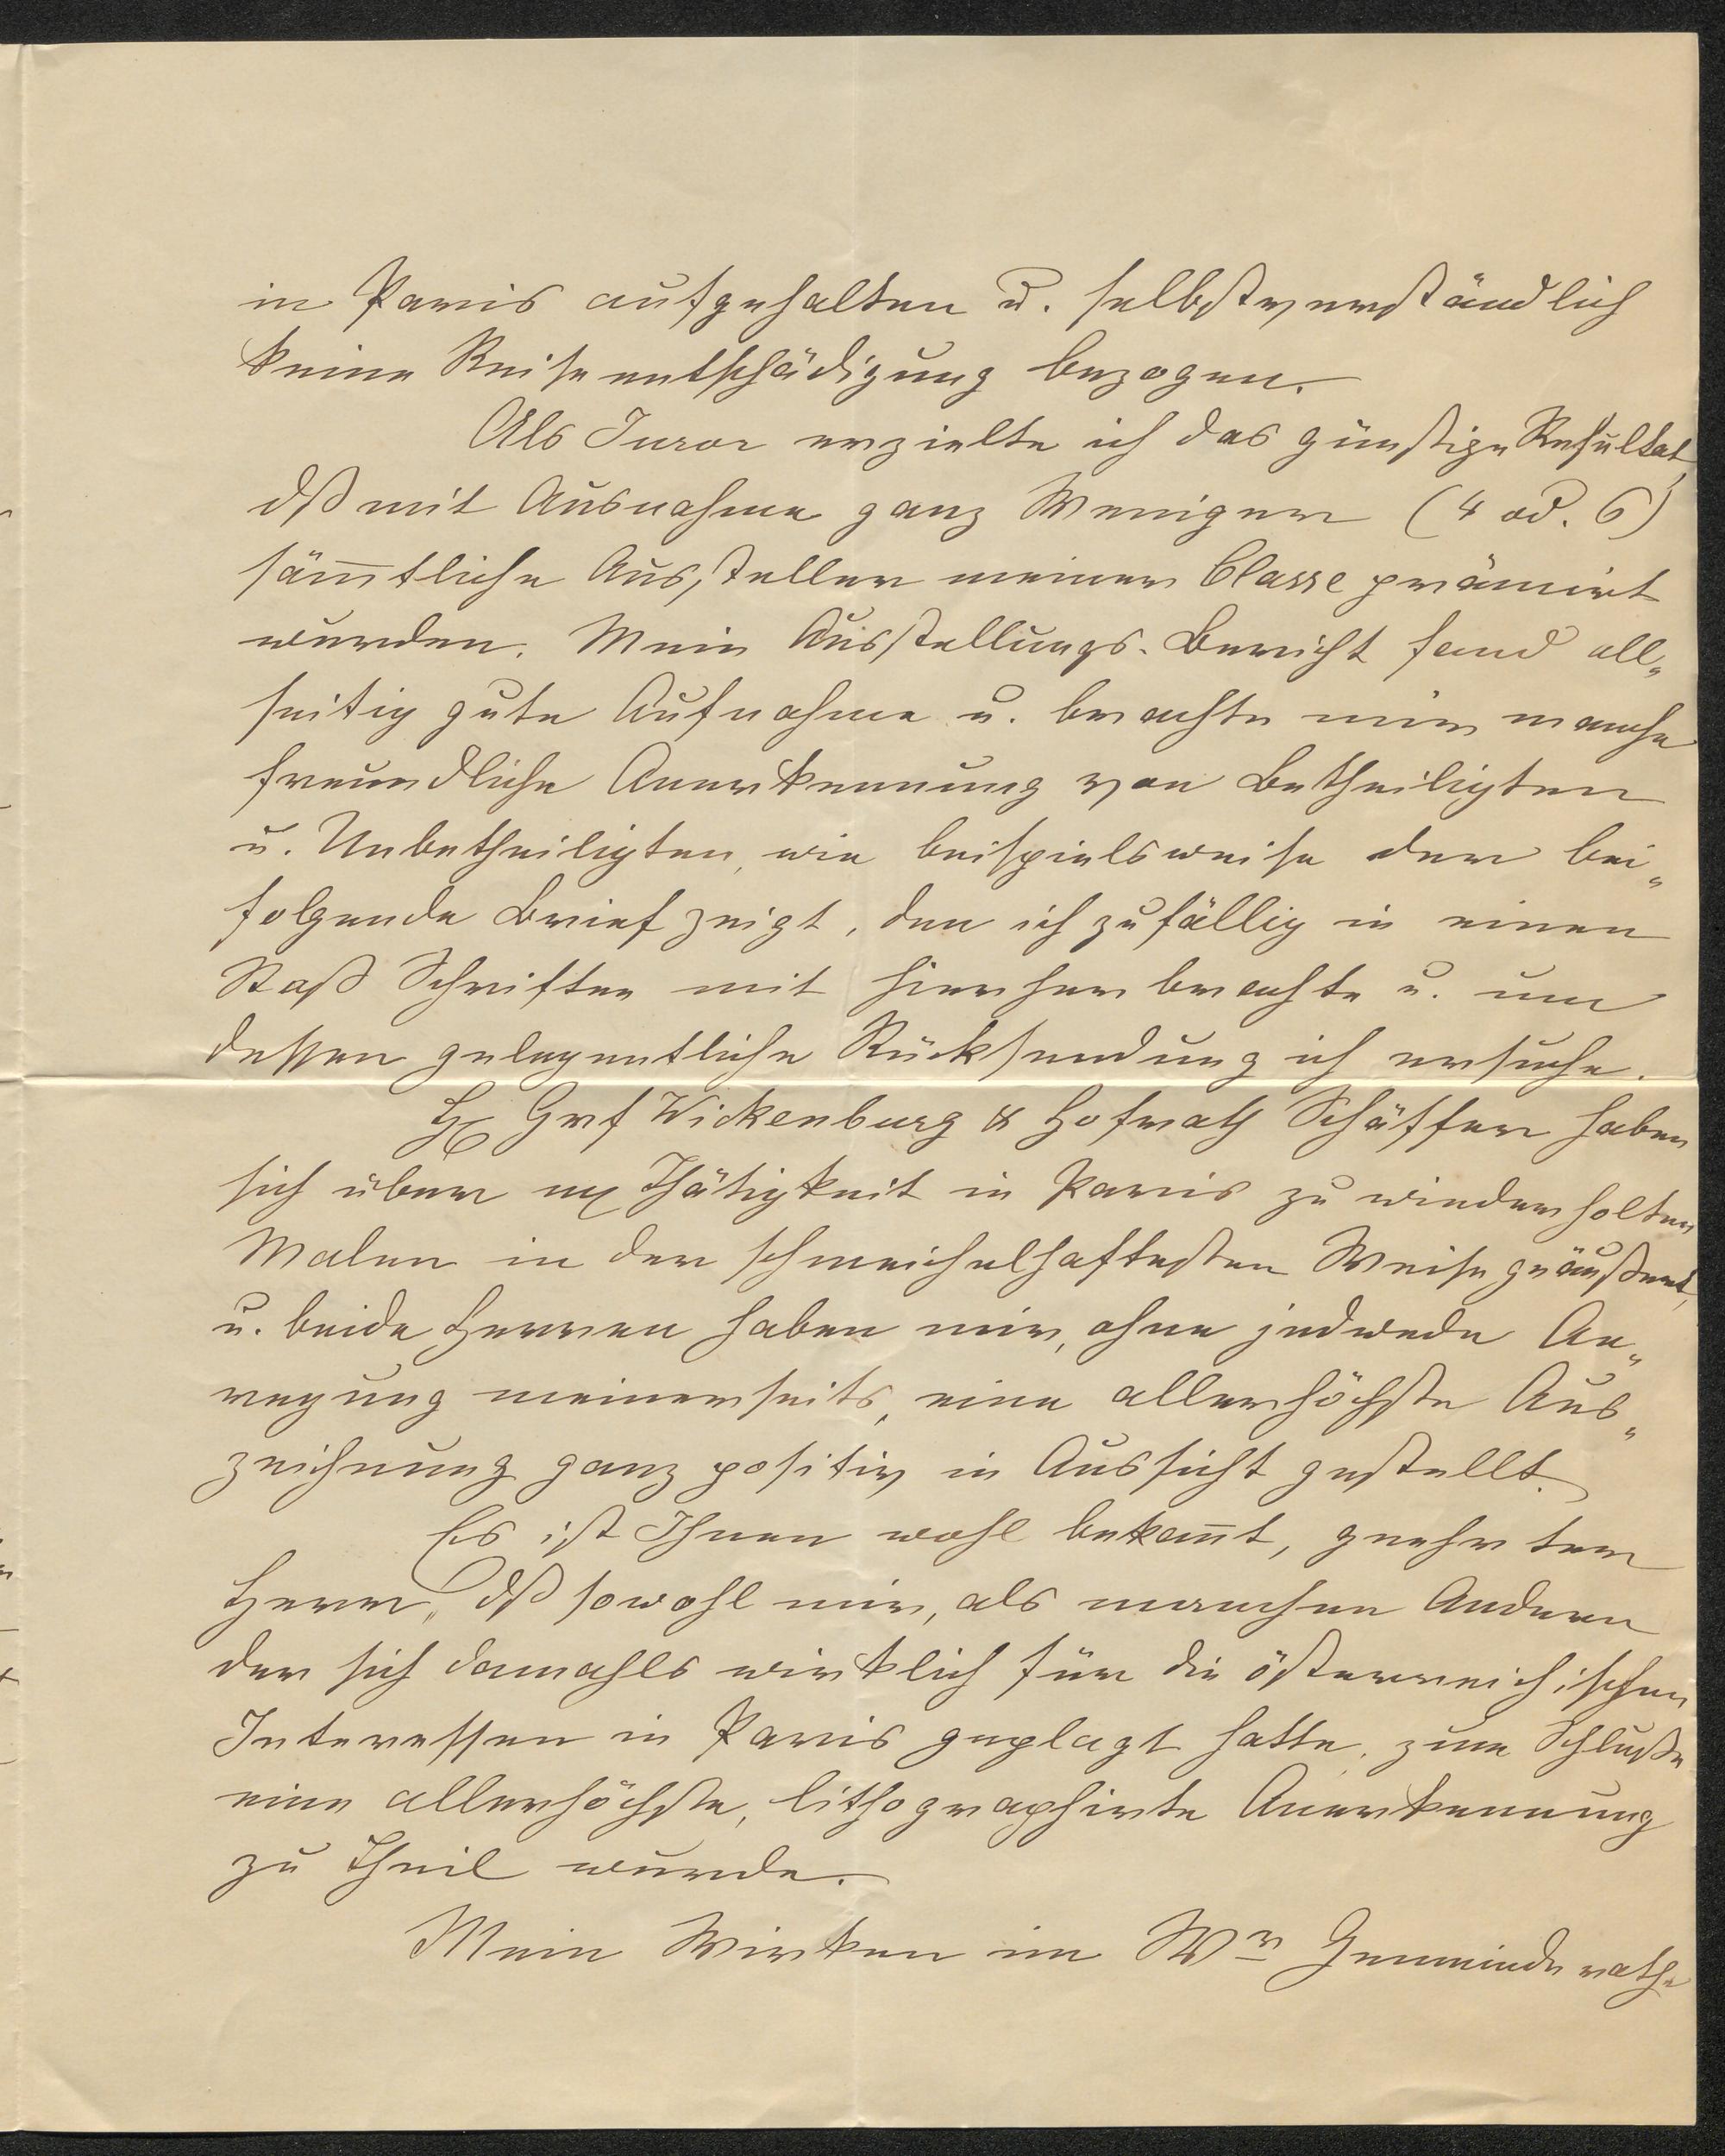 in Paris aufgehalten u. selbstverständlich
keine Reiseentschädigung bezogen.
Als Juror erzielte ich das günstige Resultat,
dß mit Ausnahme ganz Weniger (4 od. 6)
säm̄tliche Aussteller meiner Classe prämirt
wurden. Mein Ausstellungs-Bericht fand all„
seitig gute Aufnahme u. brachte mir manche
freundliche Anerkennung von Betheiligten
u. Unbetheiligten, wie beispielsweise der bei„
folgende Brief zeigt, den ich zufällig in einen
Stoß Schriften mit hierher brachte u. um
dessen gelegentliche Rücksendung ich ersuche.
H Grf Wickenburg & Hofrath Schäffer haben
sich über m Thätigkeit in Paris zu wiederholten
Malen in der schmeichelhaftesten Weise geäußert,
u. beide Herren haben mir, ohne jedwede An„
regung meinerseits, eine allerhöchste Aus„
zeichnung ganz positiv in Aussicht gestellt.
Es ist Ihnen wohl bekan̄t, geehrter
Herr, dß sowohl mir, als manchen Andern
der sich damahls wirklich für die österreichischen
Interessen in Paris geplagt hatte, zum Schluße
eine allerhöchste, lithographirte Anerkennung
zu Theil wurde.
Mein Wirken im Wr Gemeinderathe